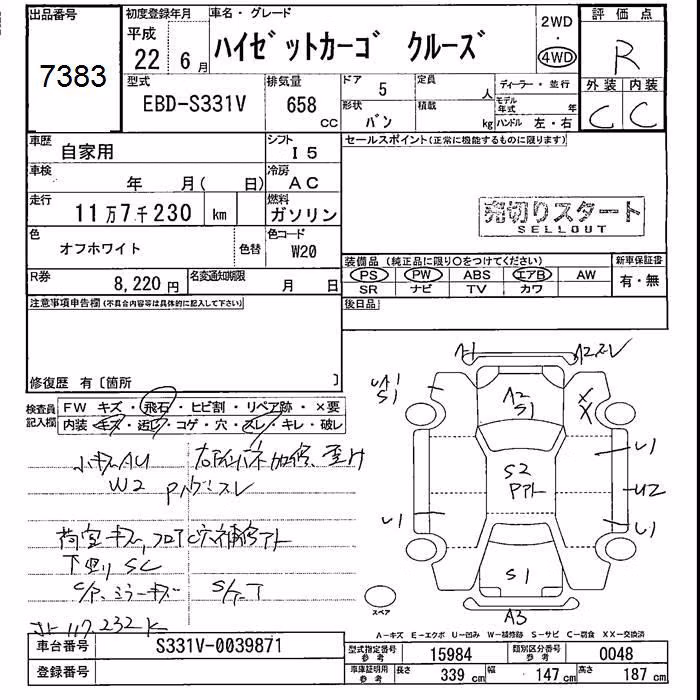 出品番号
7383
初度登録年月
平成
22 6月
車名・グレード
ハイゼットカーゴ クルーズ
2WD
4WD
評価点
R
外装 内装
C C
型式
EBD-S331V
排気量
658
CC
ドア 5
定員 人
形状 バン
積載 kg
ディーラー・並行
モデル年式 年
ハンドル 左・右
車歴
自家用
シフト
I5
セールスポイント(正常に機能するものに限ります)
車検
年 月( 日)
冷房
AC
走行
11万7千230 km
燃料
ガソリン
売切りスタート
SELLOUT
色
オフホワイト
色替
色コード
W20
装備品(純正品に限り○をつけてください)
新車保証書
PS PW ABS エアB AW
SR ナビ TV カワ
有・無
R券
8,220円
名変通知期限
月 日
後日品
注意事項申告欄(不具合内容等は具体的に記入して下さい)
修復歴 有〔箇所 〕
検査員記入欄
FW キズ・飛石・ヒビ割・リペア跡・×要
内装・キズ・汚れ・コゲ・穴・スレ・キレ・破レ
小キズAU
W2 Pハゲ スレ
下廻り SC
117,232
A1
A2スレ
UA1
S1
A2
S1
XX
U1
S2
Pアト
U2
U1
U1
S1
スペア
A3
A-キズ E-エクボ U-凹み W-補修跡 S-サビ C-腐食 XX-交換済
車台番号
S331V-0039871
登録番号
型式指定番号
参考
15984
類別区分番号
参考
0048
車庫証明用
参考
長さ 339 cm 幅 147 cm 高さ 187 cm